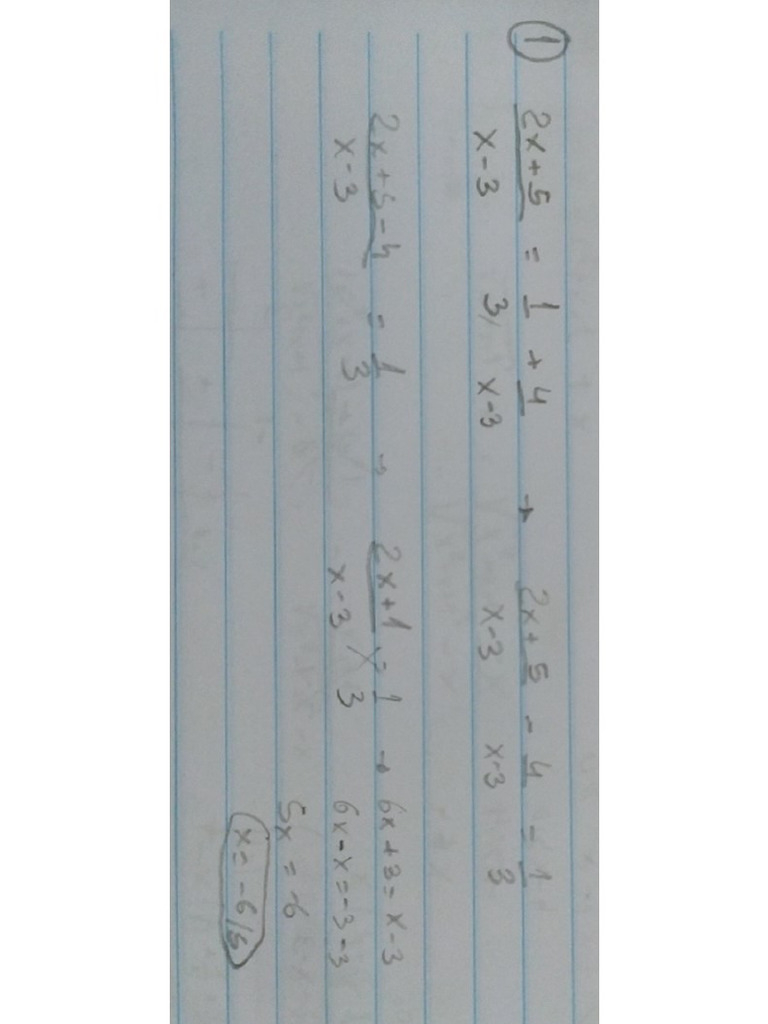 1
2x+5/x-3 = 1/3 + 4/x-3 → 2x+5/x-3 - 4/x-3 = 1/3
2x+5-4/x-3 = 1/3 → 2x+1/x-3 = 1/3 → 6x+3=x-3
6x-x=-3-3
5x = -6
x=-6/5